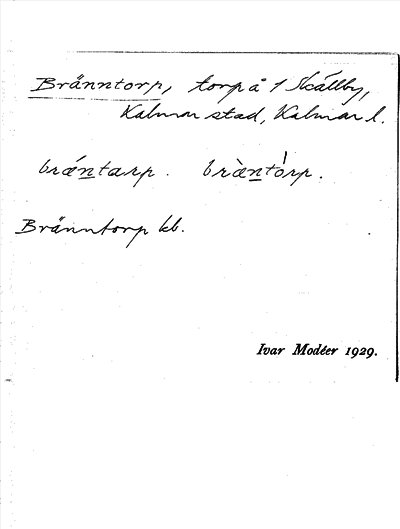 Bränntorp, torp å 1 Skällby,
Kalmar stad, Kalmar l.
brántarp. bràntórp.
Bränntorp kb.
Ivar Modéer 1929.